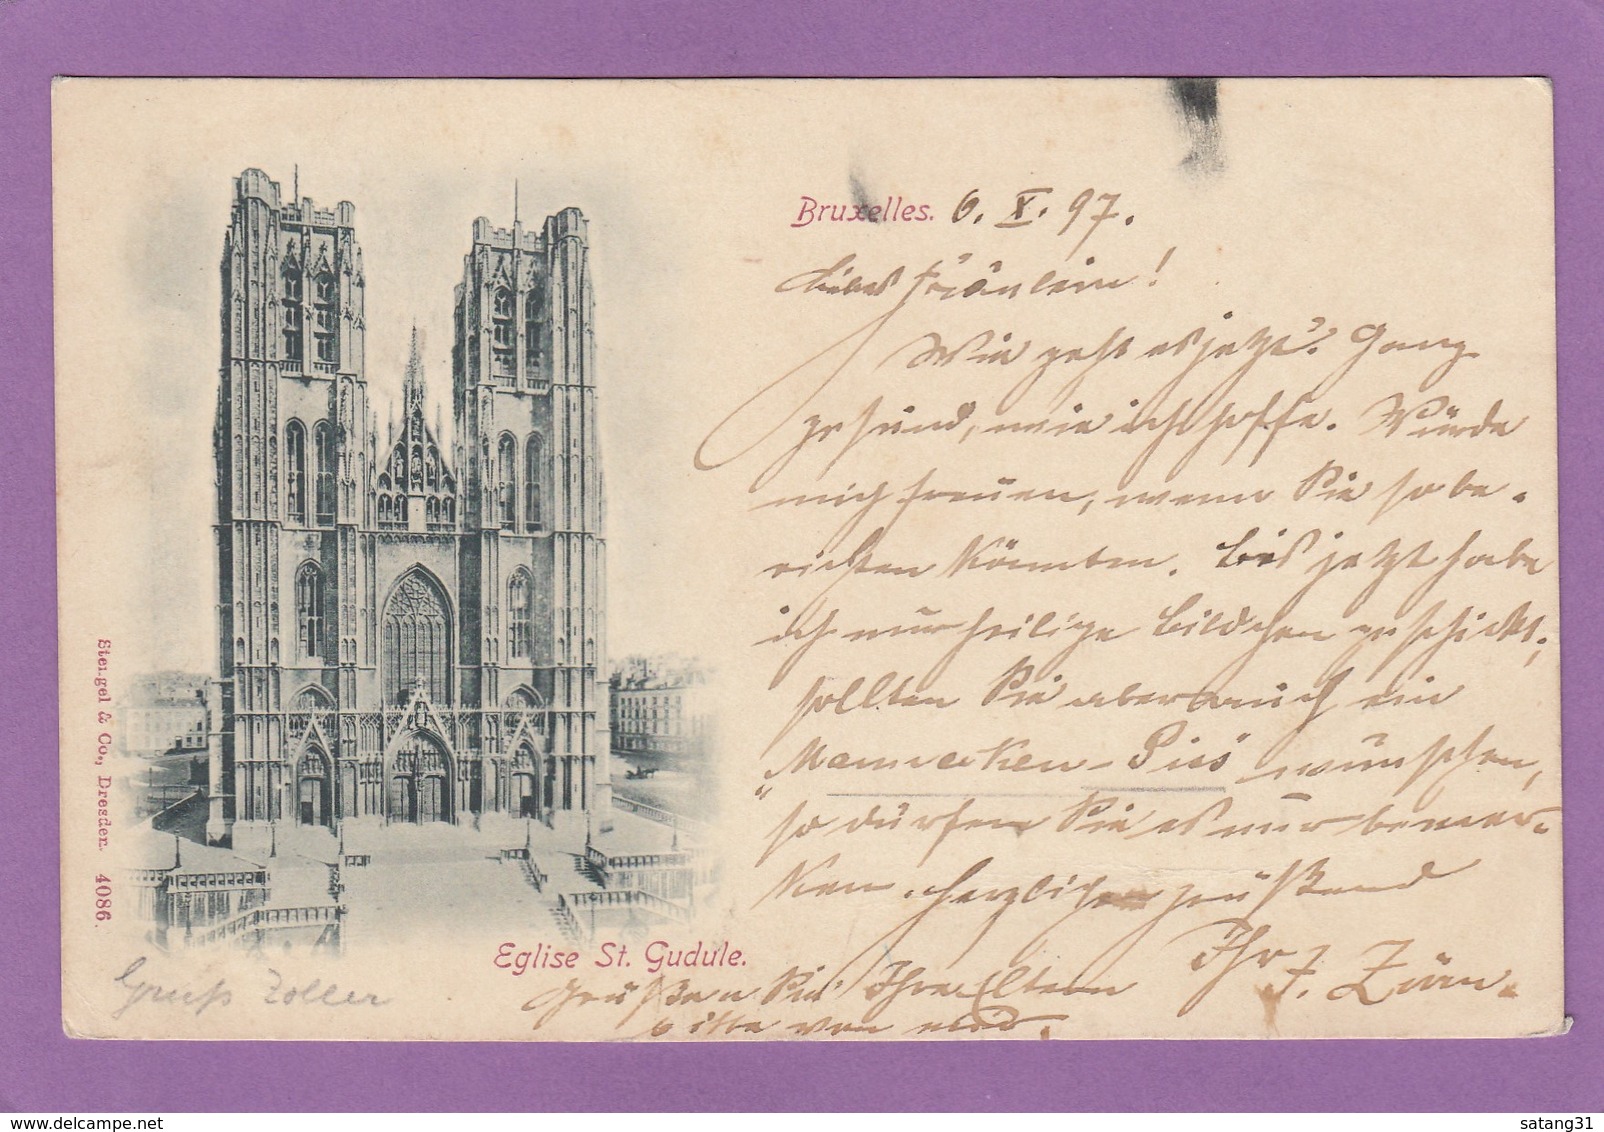 Bruxelles. 6. X. 97.
Liebes Fräulein!
Wie geht es jetzt? Ganz
gesund, wie ich hoffe. Würde
mich freuen, wenn Sie so be-
richten könnten. Bis jetzt habe
ich nur heilige Bildchen geschickt,
sollten Sie aber auch ein
"Mannecken-Piss" wünschen,
so dürfen Sie es nur bemer-
ken. Herzlichen grüßend
Ihr J.
Grüßen Sie Ihre Eltern
bitte von mir.
Eglise St. Gudule.
Gruß Zoller
Stengel & Co., Dresden. 4086.
satang31